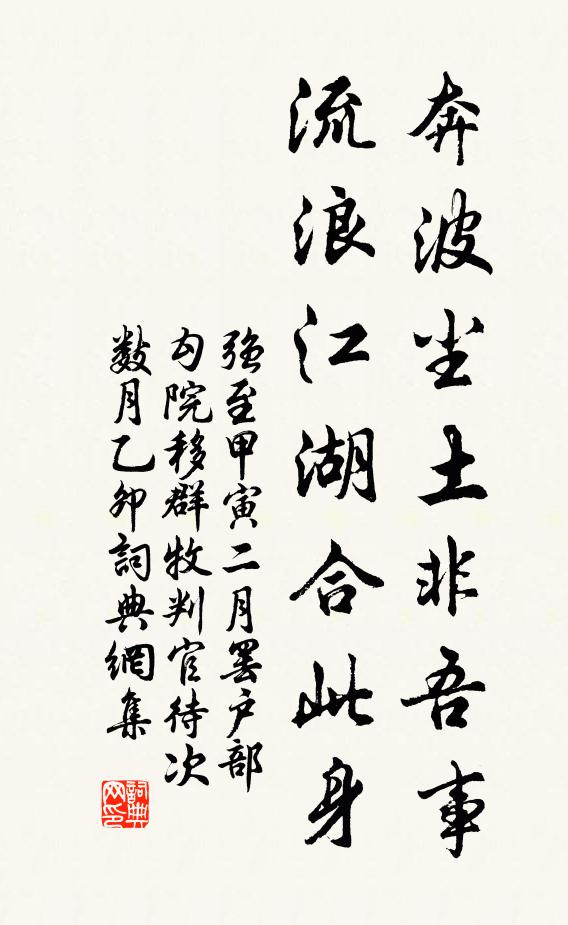 奔波尘土非吾事
流浪江湖合此身
強至甲寅二月罢户部
勾院移群牧判官待次
数月乙卯詞典網集
詞典
网印